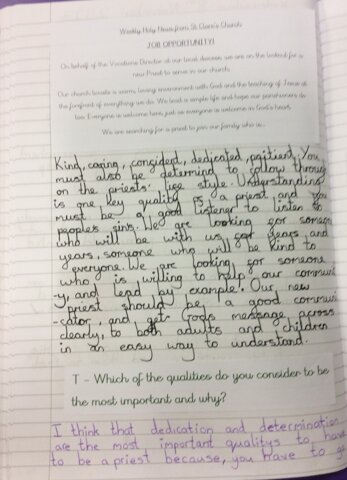 Weekly Holy News from St Clare's Church
JOB OPPORTUNITY!
On behalf of the Vocations Director at our local diocese, we are on the lookout for a
new Priest to serve in our church.
Our church boasts a warm, loving environment with God and the teaching of Jesus at
the forefront of everything we do. We lead a simple life and hope our parishioners do
too. Everyone is welcome here, just as everyone is welcome in God's heart.
We are searching for a priest to join our family who is...
Kind, caring, confident, dedicated, patient. You
must also be determind to follow through
on the priests' life style. Understanding
is one key quality of a priest and you
must be a good listener to listen to
peoples sins. We are looking for someon
who will be with us for years and
years, someone who will be kind to
everyone. We are looking for someone
who is willing to help our communit
-y, and lead by example! Our new
priest should be a good communi
-cator, and get Gods message across
clearly, to both adults and children
in an easy way to understand.
T - Which of the qualities do you consider to be
the most important and why?
I think that dedication and determination
are the most important qualitys to have
to be a priest because, you have to go